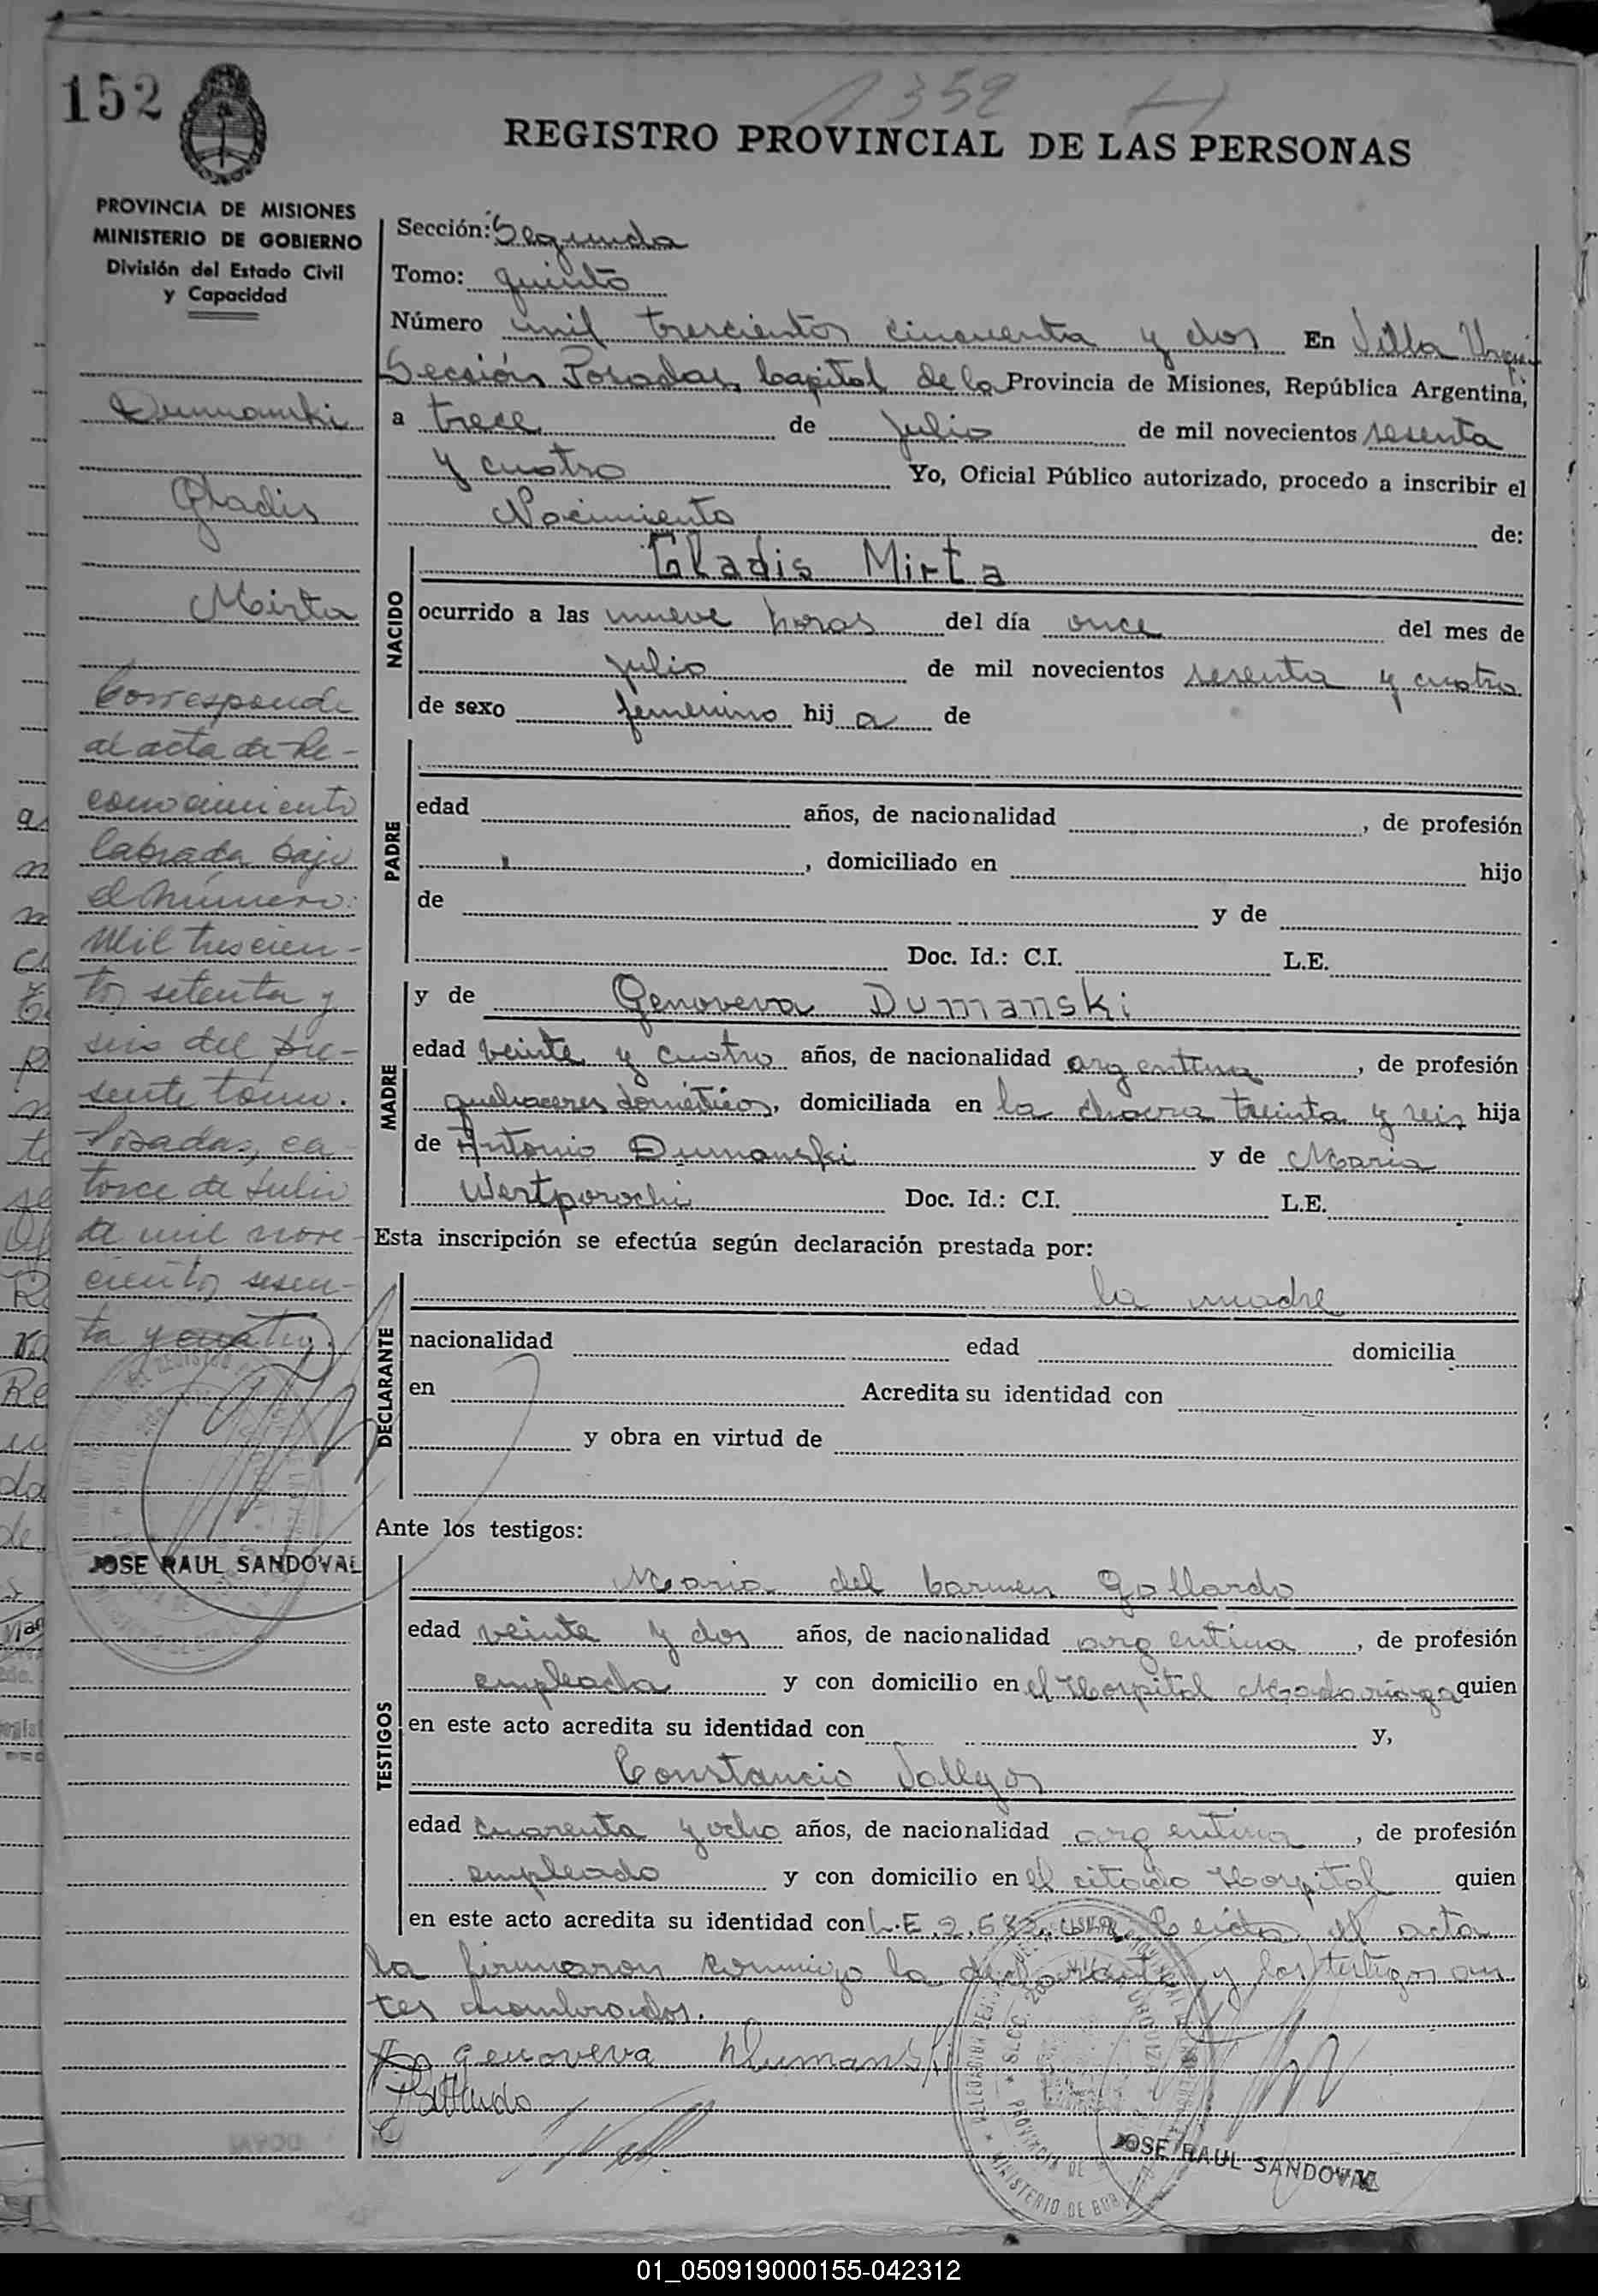 152
1352
REGISTRO PROVINCIAL DE LAS PERSONAS
PROVINCIA DE MISIONES
MINISTERIO DE GOBIERNO
División del Estado Civil
y Capacidad
Dumanski
Gladis
Mirta
Corresponde
al acta de Re-
conocimiento
labrada bajo
el número:
Mil trescien-
tos setenta y
seis del pre-
sente tomo.
Posadas, ca-
torce de Julio
de mil nove-
cientos sesen-
ta y cuatro.
JOSE RAUL SANDOVAL
Sección: Segunda
Tomo: quinto
Número mil trescientos cincuenta y dos En Villa
Sección Posadas, Capital de la Provincia de Misiones, República Argentina,
a trece de julio de mil novecientos sesenta
y cuatro Yo, Oficial Público autorizado, procedo a inscribir el
Nacimiento de:
NACIDO
Gladis Mirta
ocurrido a las nueve horas del día once del mes de
julio de mil novecientos sesenta y cuatro
de sexo femenino hij a de
PADRE
edad años, de nacionalidad , de profesión
, domiciliado en hijo
de y de
Doc. Id.: C.I. L.E.
MADRE
y de Genoveva Dumanski
edad veinte y cuatro años, de nacionalidad argentina , de profesión
quehaceres domésticos, domiciliada en la chacra treinta y seis hija
de Antonio Dumanski y de Maria
Doc. Id.: C.I. L.E.
Esta inscripción se efectúa según declaración prestada por:
DECLARANTE
la madre
nacionalidad edad domicilia
en Acredita su identidad con
y obra en virtud de
Ante los testigos:
TESTIGOS
Maria del Carmen Gallardo
edad veinte y dos años, de nacionalidad argentina , de profesión
empleada y con domicilio en el Hospital Madariaga quien
en este acto acredita su identidad con y,
Constancio Vallejos
edad cuarenta y ocho años, de nacionalidad argentina , de profesión
empleado y con domicilio en el citado Hospital quien
en este acto acredita su identidad con L.E. Leida el acta
la firmaron conmigo la declarante y los testigos an
tes nombrados.
Genoveva Dumanski
Gallardo
JOSE RAUL SANDOVAL
01_050919000155-042312